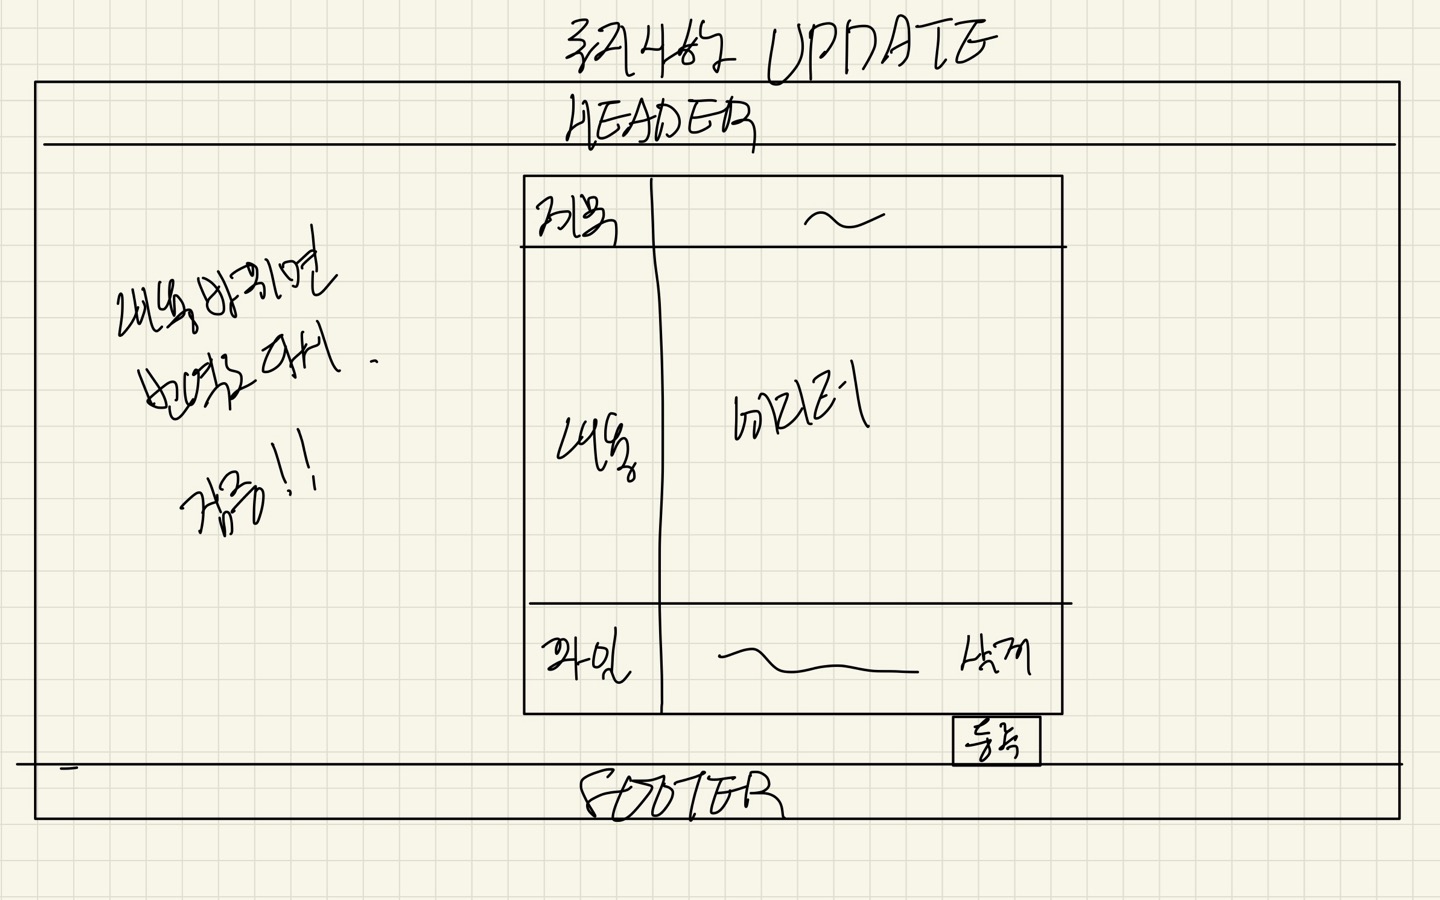 공지사항 UPDATE
HEADER
제목
내용 바뀌면
번역도 다시.
검증!!
내용
에디터
파일
삭제
등록
FOOTER